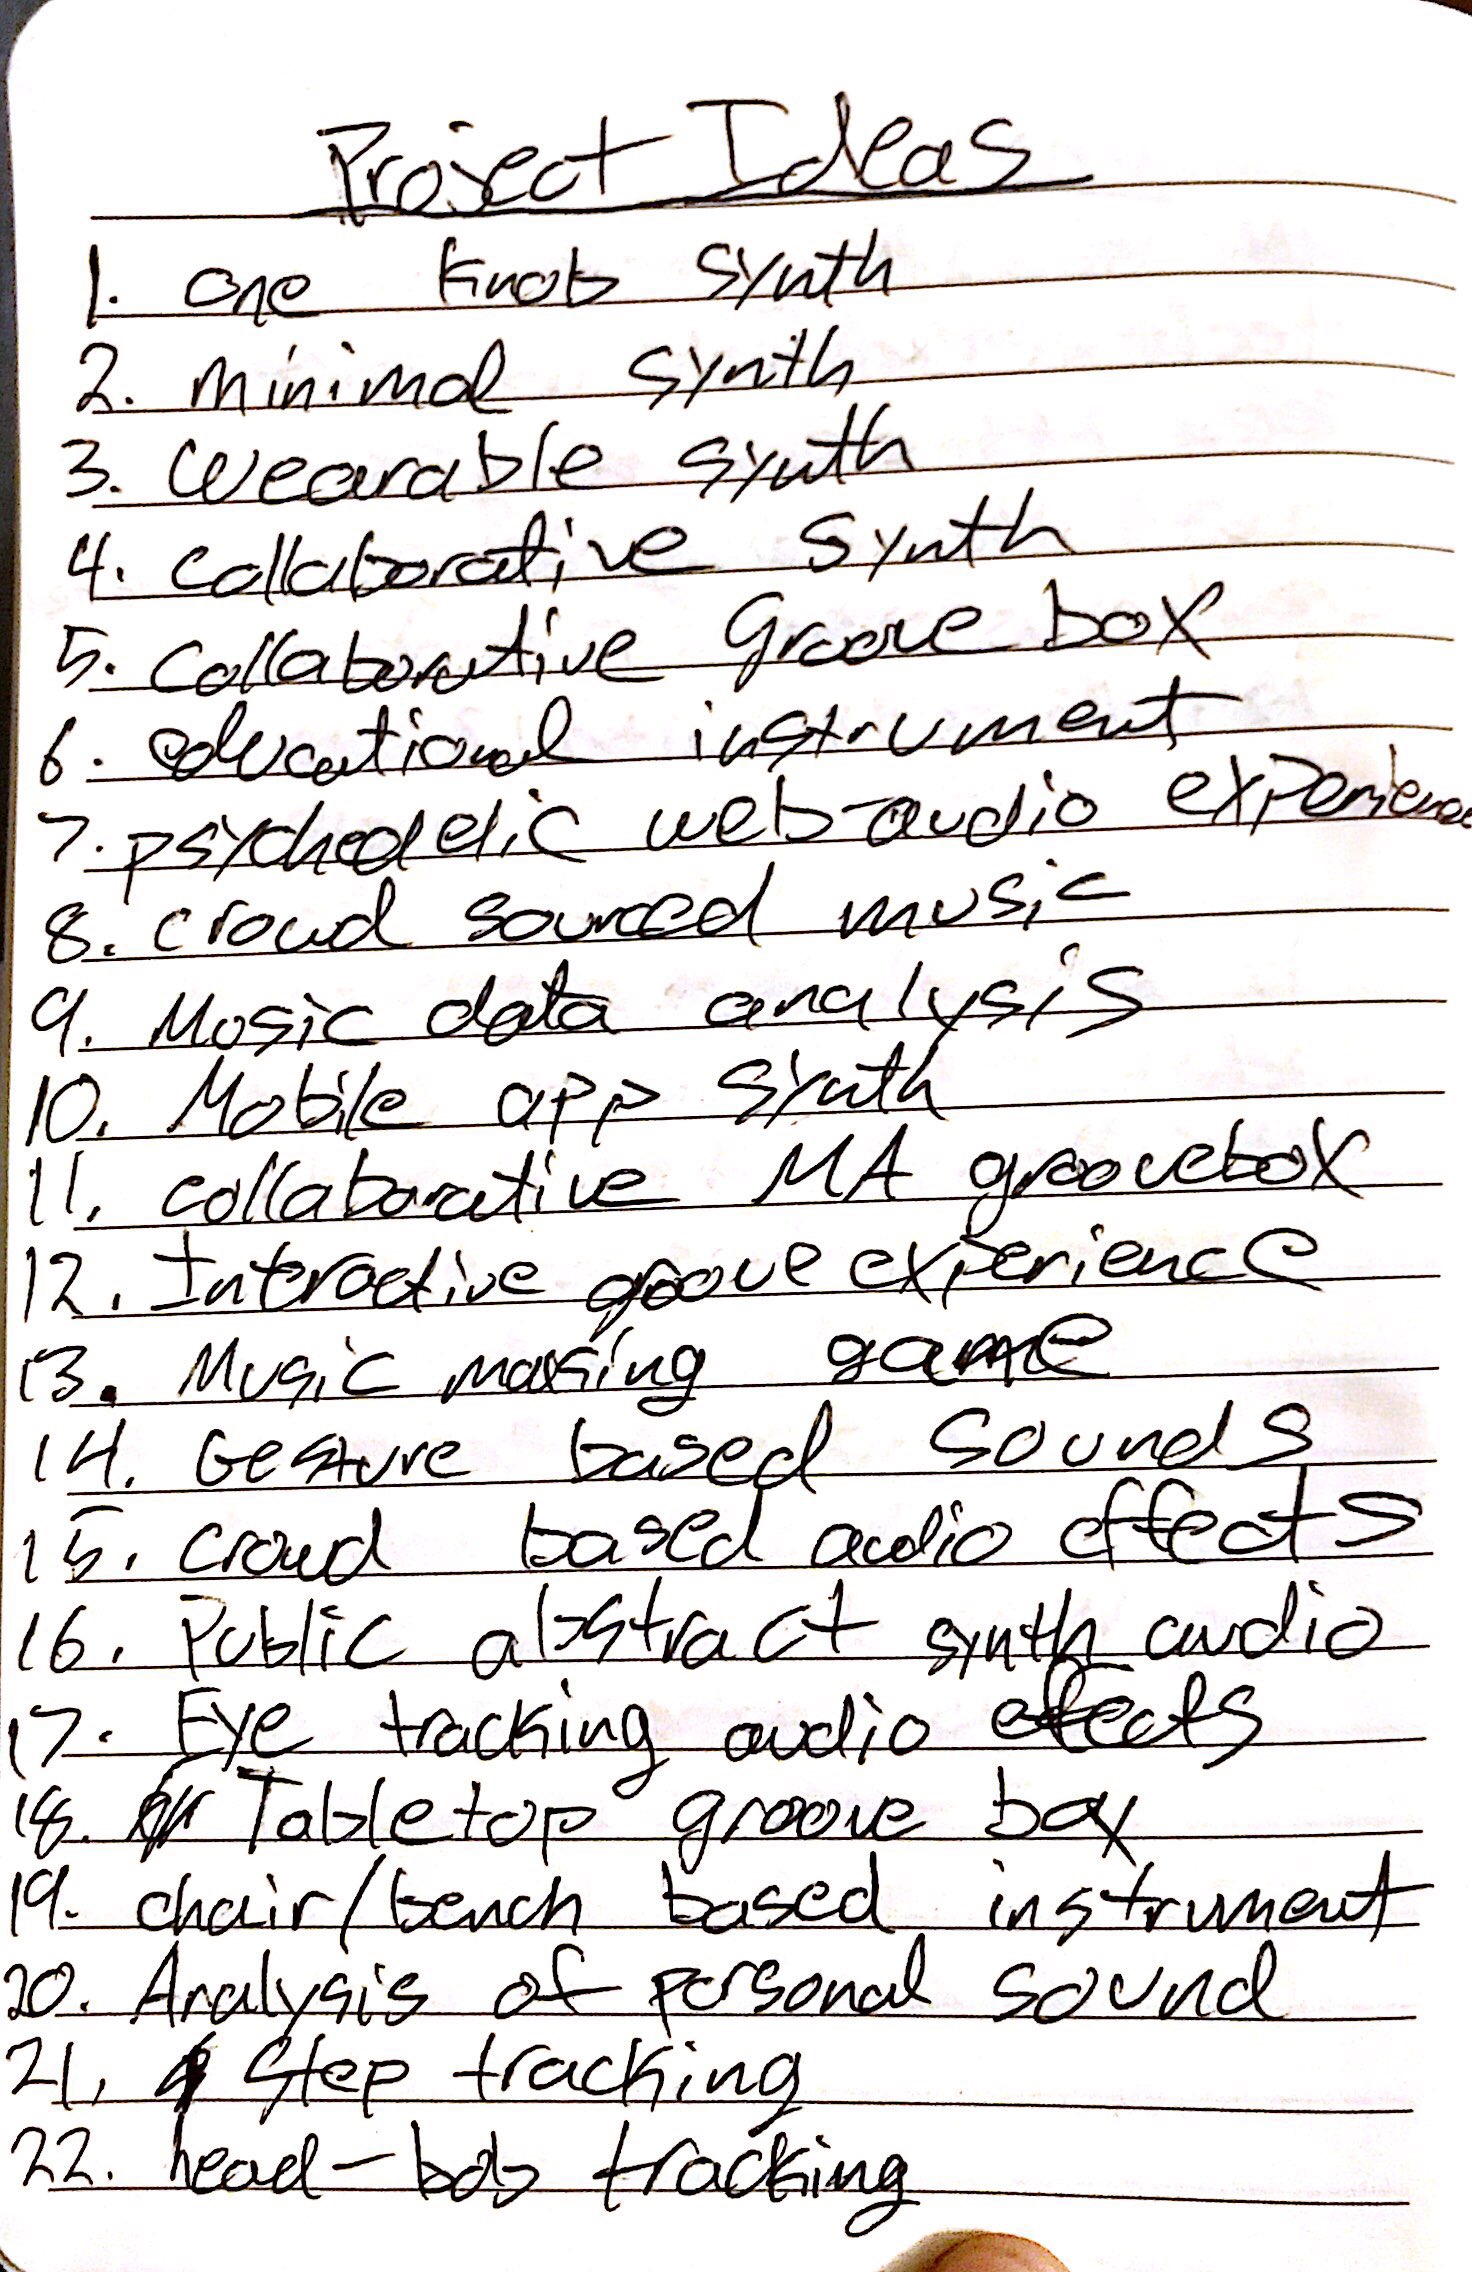 Project Ideas
1. one knob synth
2. minimal synth
3. wearable synth
4. collaborative synth
5. collaborative Groove box
6. educational instrument
7. psychedelic web-audio experience
8. crowd sourced music
9. Music data analysis
10. Mobile app synth
11. collaborative MA groovebox
12. Interactive groove experience
13. Music making game
14. Gesture based sounds
15. crowd based audio effects
16. Public abstract synth audio
17. Eye tracking audio effects
18. Tabletop groove box
19. chair/bench based instrument
20. Analysis of personal sound
21. Step tracking
22. head-bob tracking